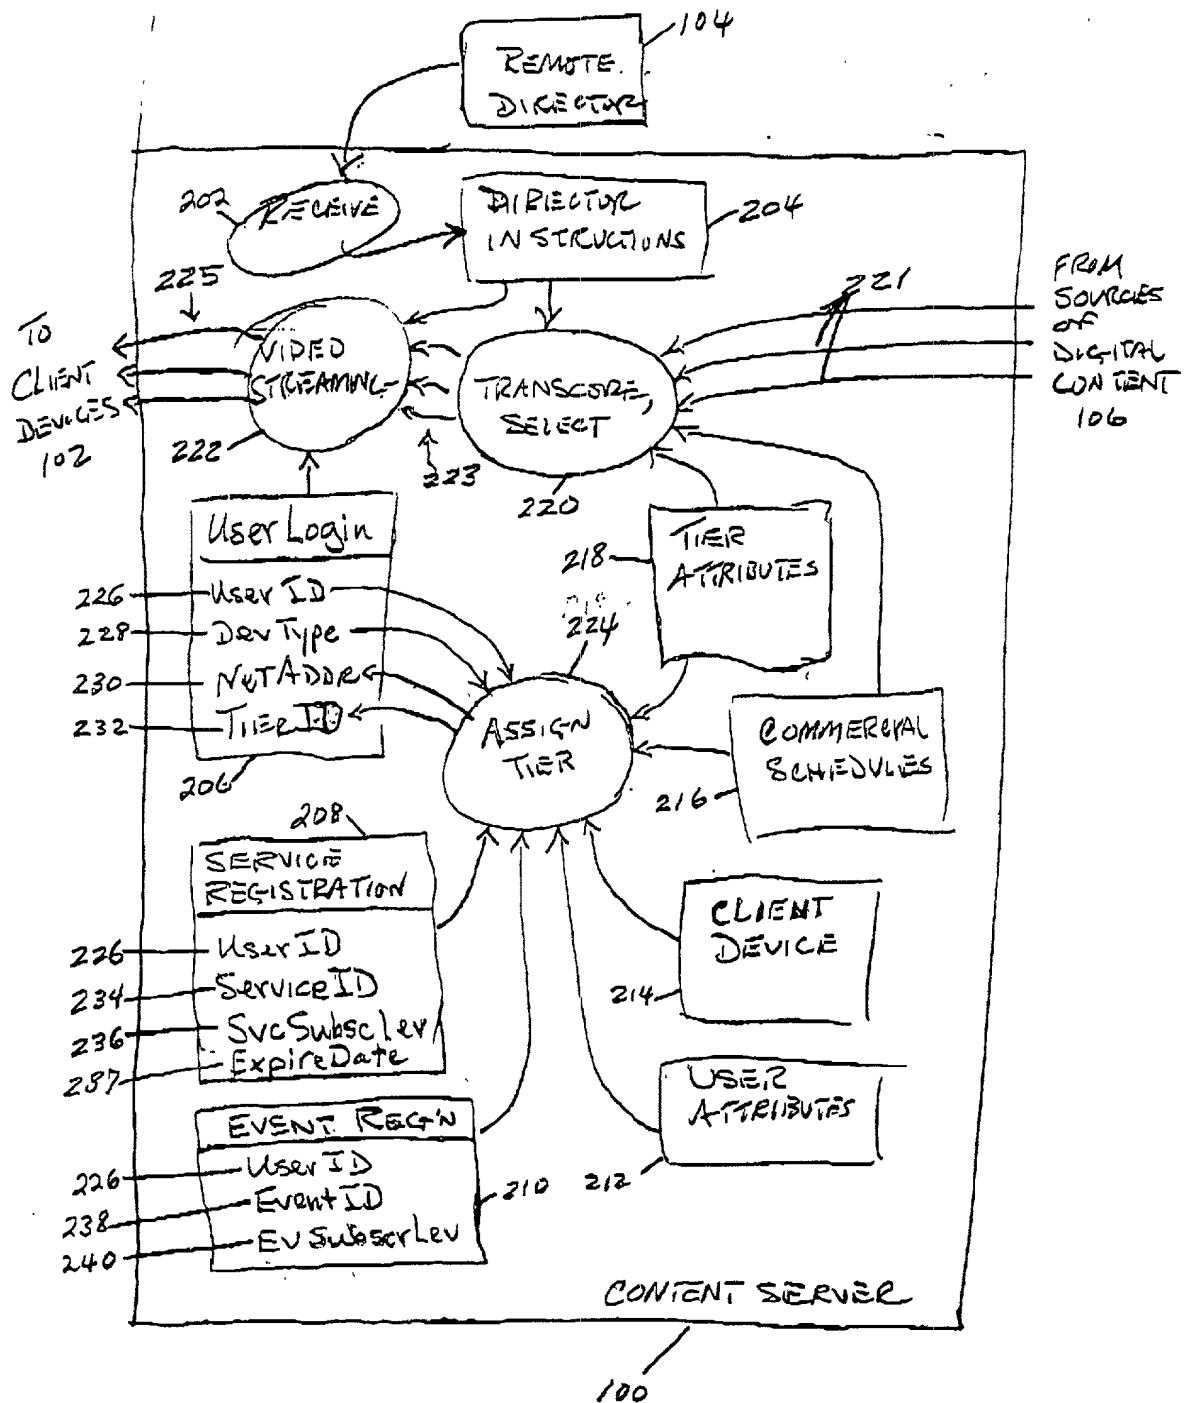 104
REMOTE
DIRECTOR
202
RECEIVE
DIRECTOR
INSTRUCTIONS
204
225
221
FROM
SOURCES
OF
DIGITAL
CONTENT
106
TO
CLIENT
DEVICES
102
VIDEO
STREAMING
222
223
TRANSCORE,
SELECT
220
User Login
226 User ID
228 Dev Type
230 NETADDR
232 TIER ID
206
218
TIER
ATTRIBUTES
224
ASSIGN
TIER
COMMERCIAL
SCHEDULES
216
208
SERVICE
REGISTRATION
226 User ID
234 Service ID
236 SvcSubscLev
237 ExpireDate
CLIENT
DEVICE
214
USER
ATTRIBUTES
212
EVENT REG'N
226 User ID
238 Event ID
240 EvSubscrLev
210
CONTENT SERVER
100